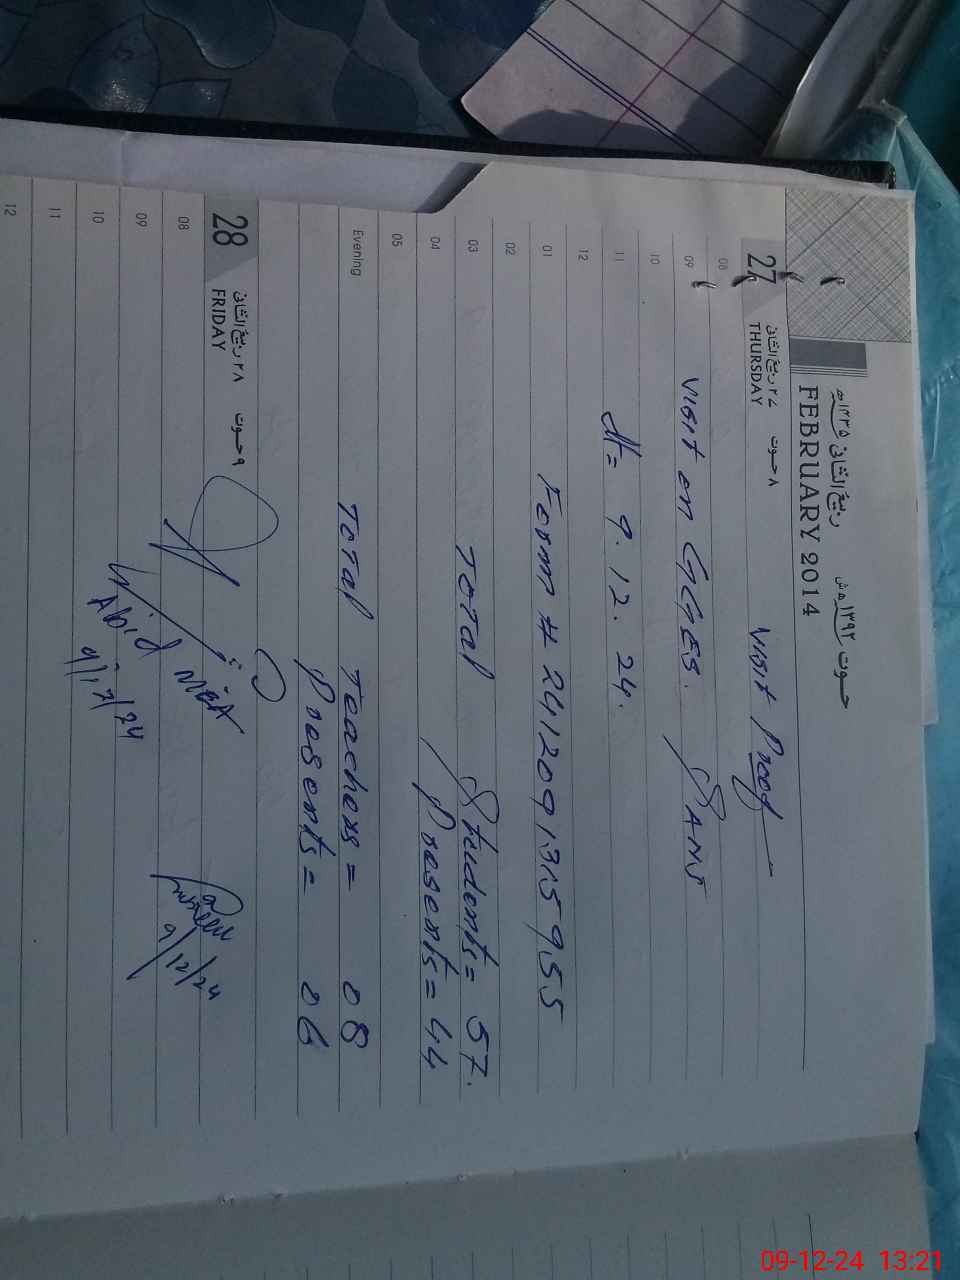 ربیع الثانی ۱۴۳۵ھ حوت ۱۳۹۲ ھش
FEBRUARY 2014
27 ۲۷ ربیع الثانی ۸ حوت
THURSDAY
Visit Proof
08
09 Visit on GGES. SAMI
10
11 dt = 9.12.24.
12
01 Form # 2412091315955
02
03 Total Students = 57.
04 Presents = 44
05
Evening Total Teachers = 08
Presents = 06
28 ۲۸ ربیع الثانی ۹ حوت
FRIDAY
08
09
10
11
12
Abid MEA
9/12/24
9/12/24
09-12-24 13:21